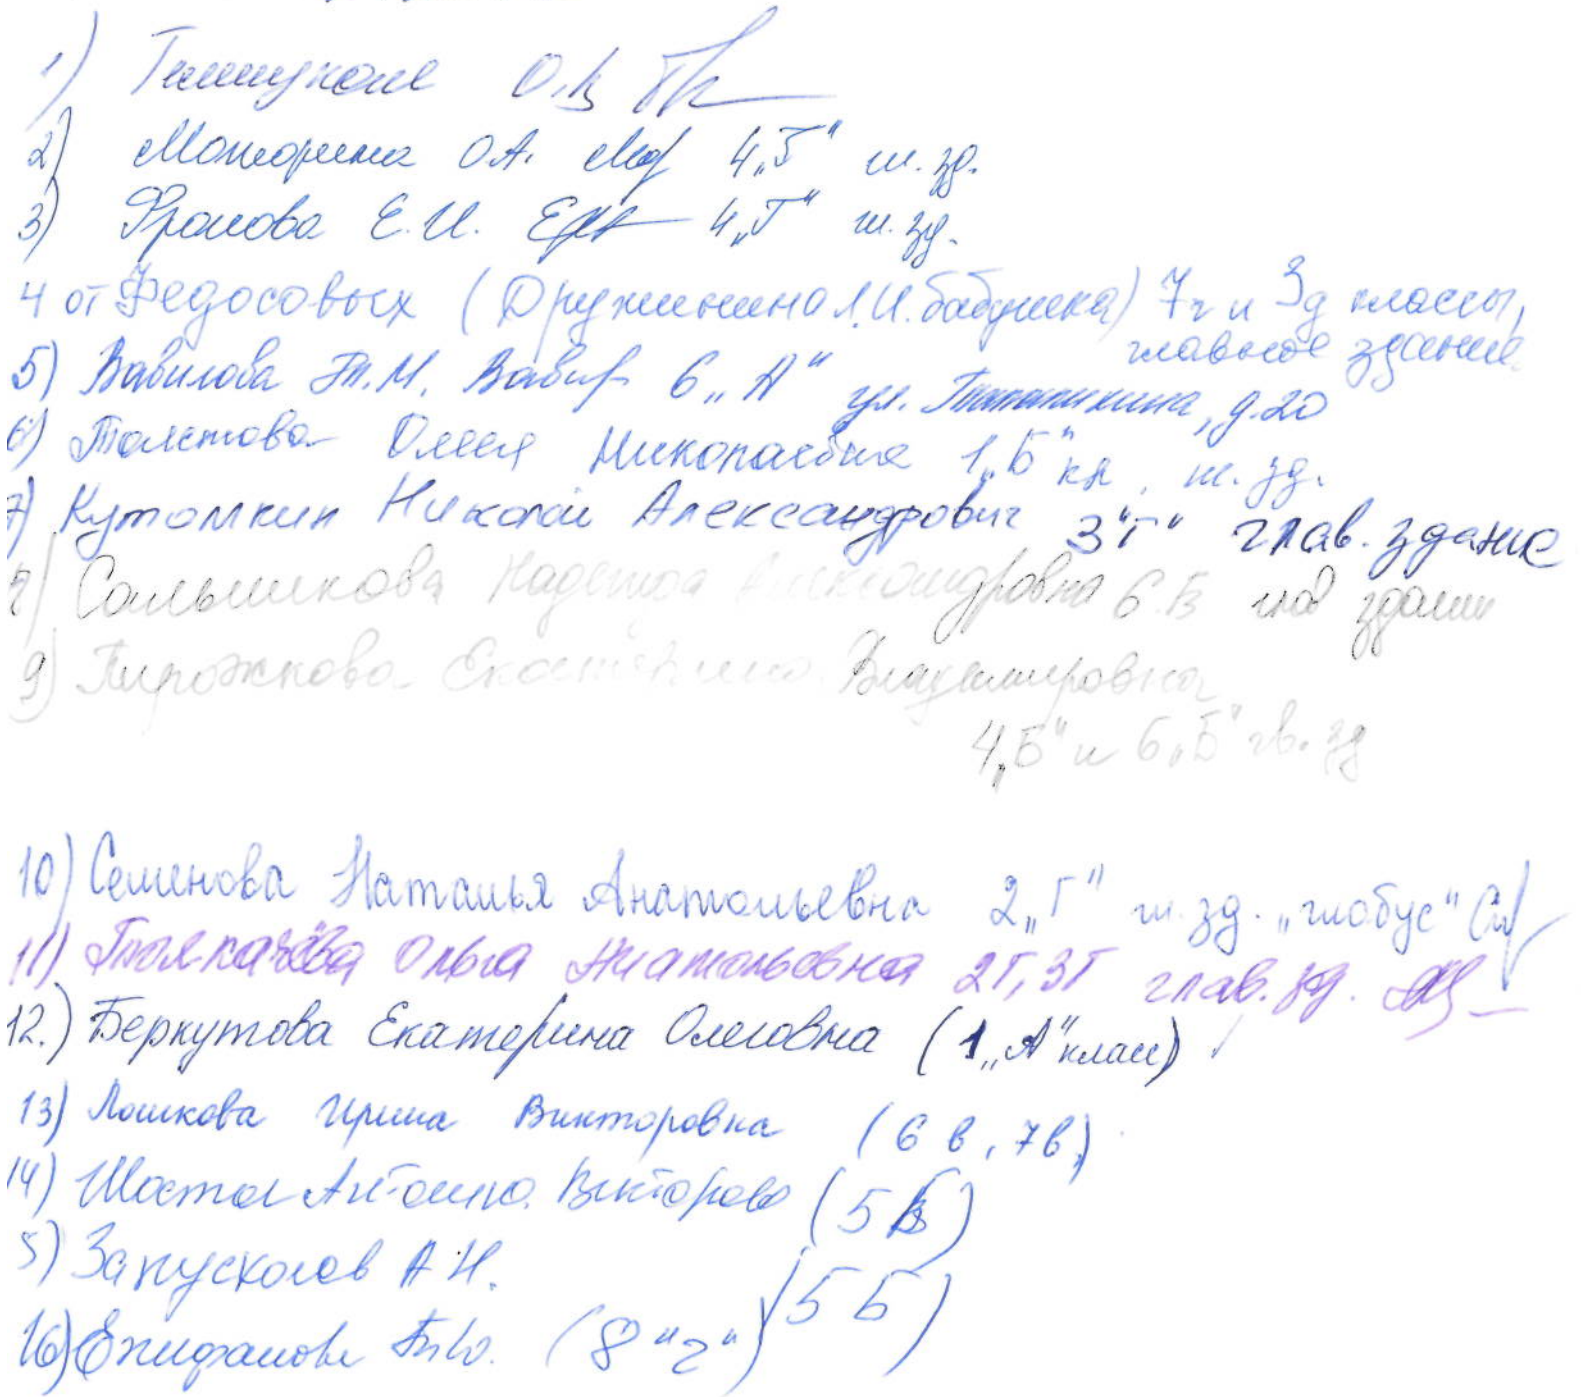 1) О.В.
2) Моторина О.А. 4 „Г" ш. зд.
3) Фролова Е.И. 4 „Г" ш. зд.
4 от Федосовых (Дружинина Л.И. бабушка) 7г и 3д классы,
главное здание
5) Вавилова Т.М. Вавил 6 „А" ул. д. 20
6) Толстова Олеся Николаевна 1 „Б" кл. ш. зд.
7) Кутомкин Николай Александрович 3 "Г" глав. здание
8) Сальникова Надежда Александровна 6.В глав здание
9) Пирожкова Екатерина Владимировна
4 „Б" и 6 „Б" гв. зд
10) Семенова Наталья Анатольевна 2 „Г" ш. зд. „глобус"
11) Толкачёва Ольга Анатольевна 2Г, 3Г глав. зд.
12.) Беркутова Екатерина Олеговна (1 „А" класс)
13) Лошкова Ирина Викторовна (6 в, 7в)
14) (5 )
5) А.Н. (5 Б)
16) Епифанова (8 "г")